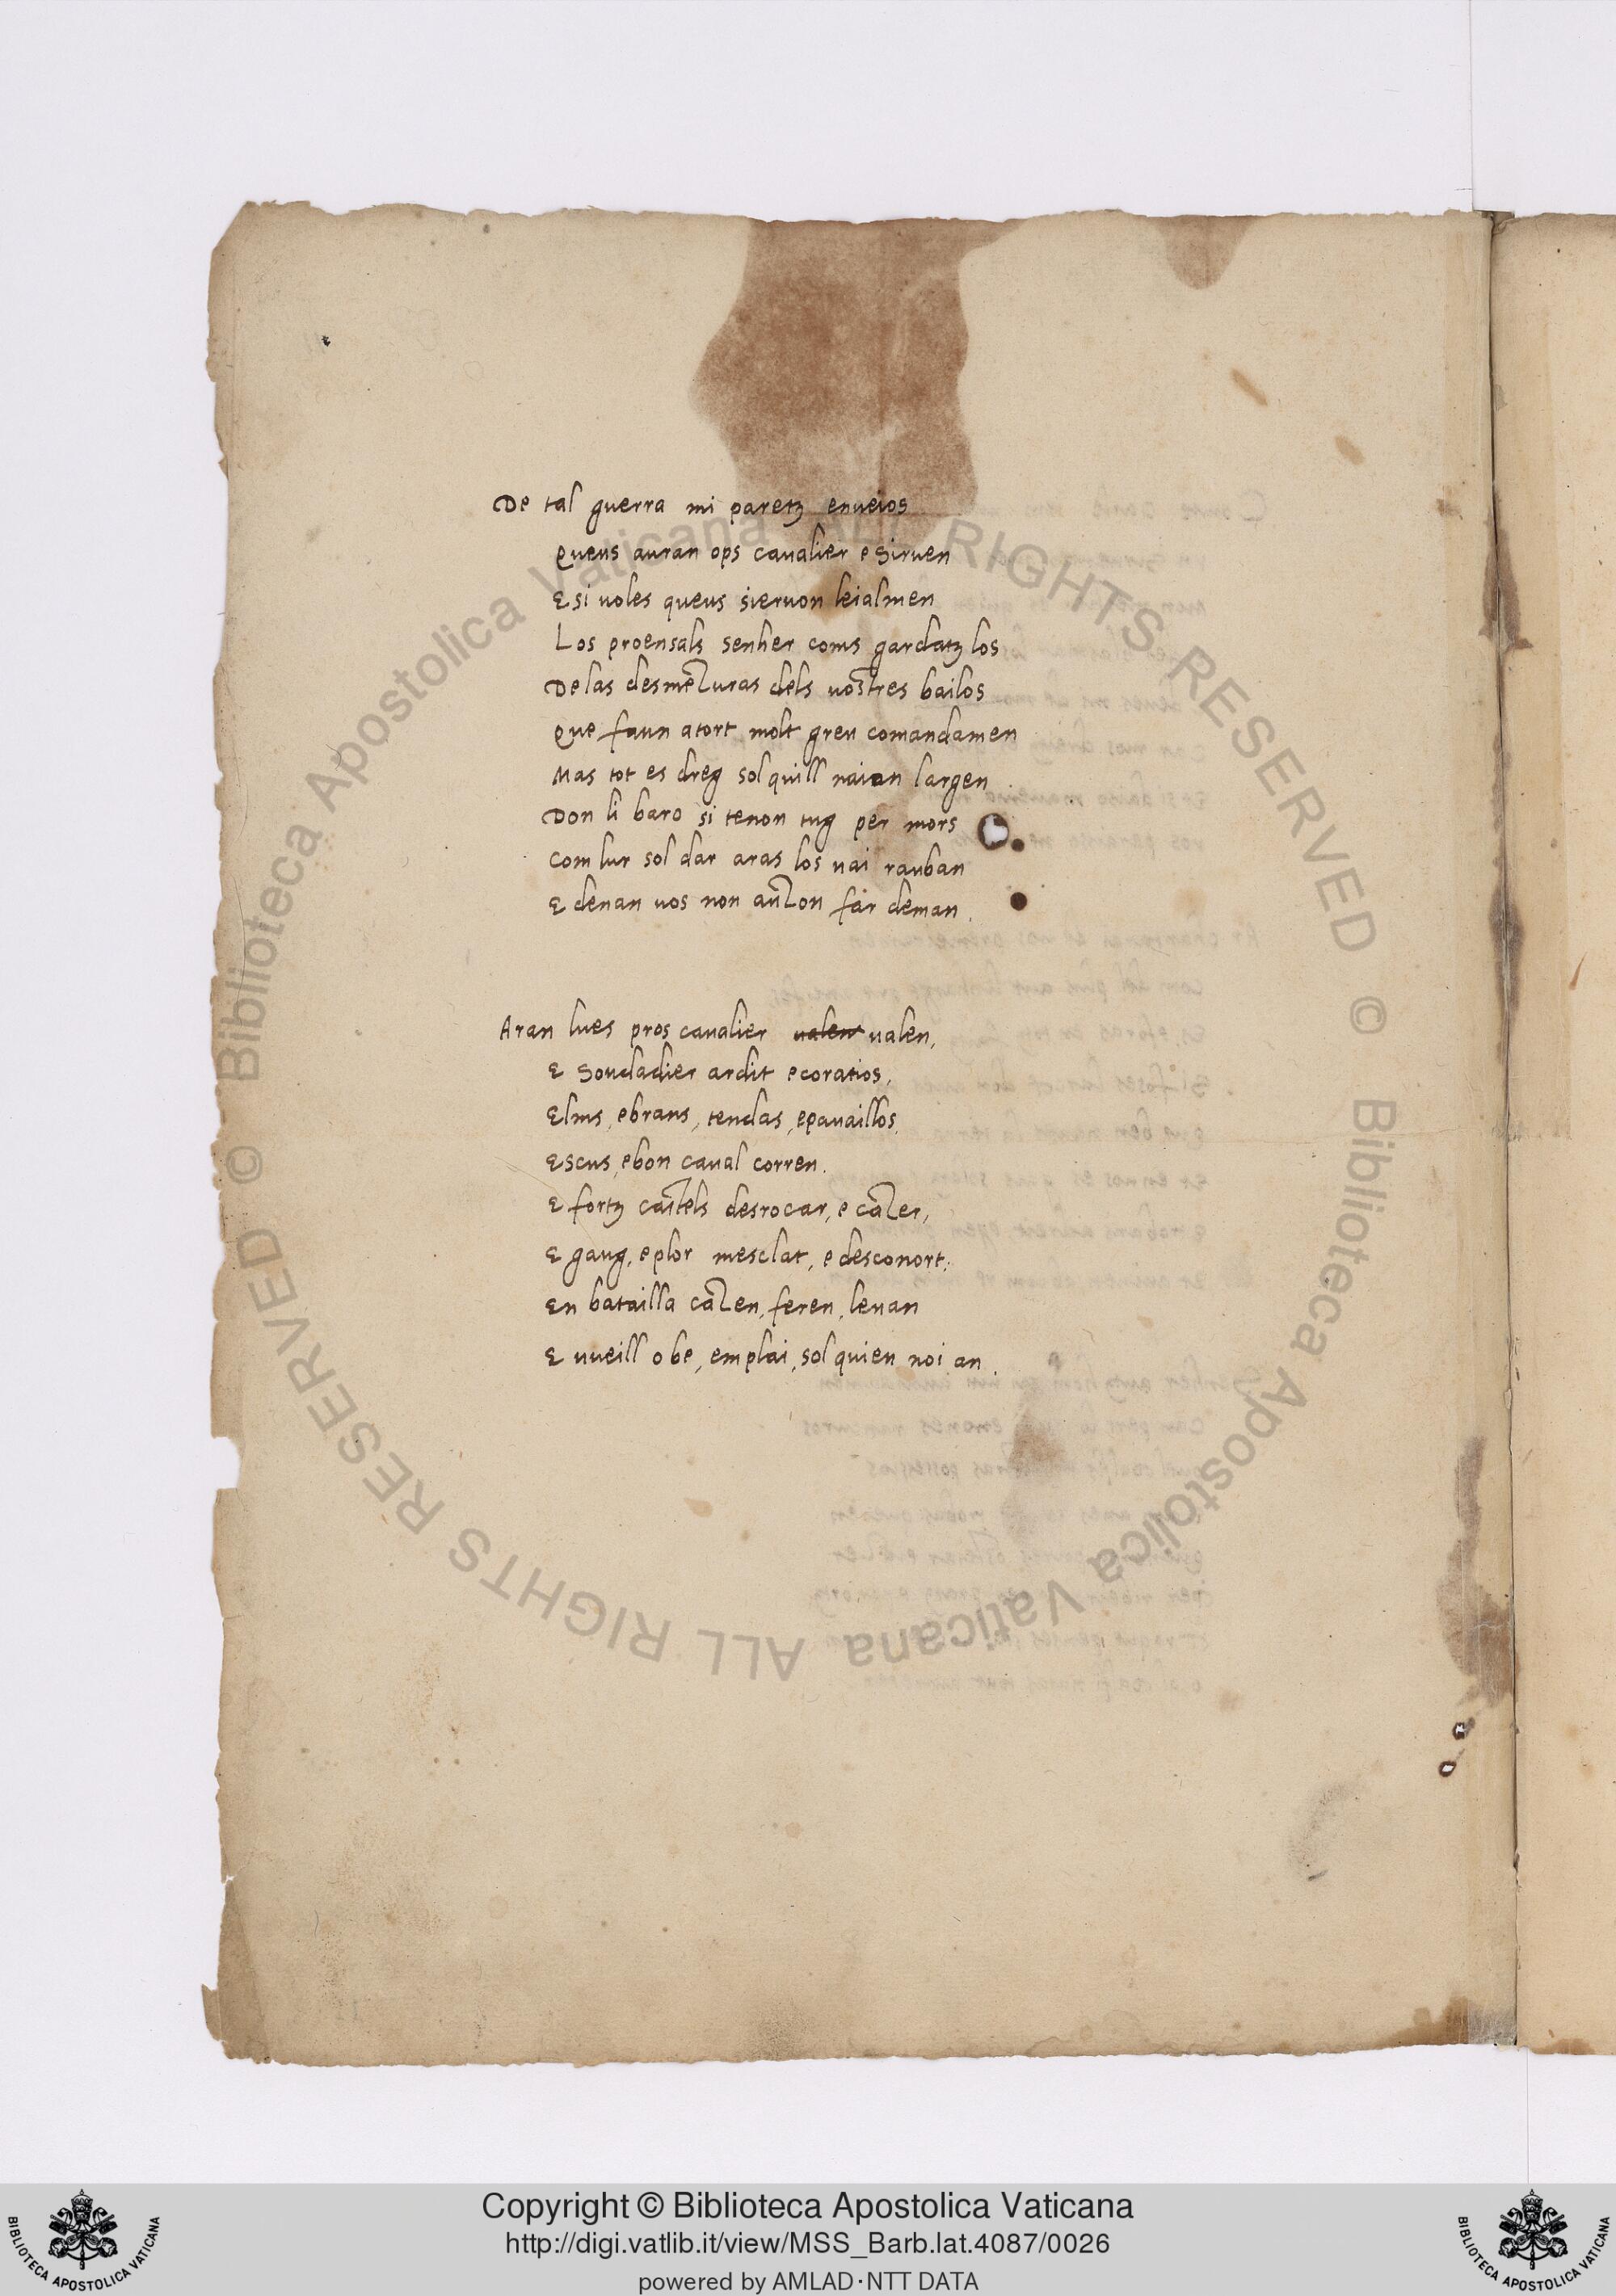 De tal guerra mi paretz enueios
Queus auran ops caualier e Siruen
E si uoles queus sieruon leialmen
Los proensals senher coms gardatz los
De las desmezuras dels uostres bailos
Que faun atort molt greu comandamen
Mas tot es dreg sol quill naian largen
Don li baro si tenon tug per mors
Com lur sol dar aras los uai rauban
E denan uos non auzon far deman.
Aran lues pros caualier ualen ualen,
E Soudadier ardit e coratios,
Elms, e brans, tendas, e pauaillos,
Escus, e bon caual corren.
E fortz castels desrocar, e cazer,
E gaug, e plor mesclat, e desconort,
En batailla cazen, feren, leuan
E uueill o be, em plai, sol quieu noi an.
Copyright © Biblioteca Apostolica Vaticana
http://digi.vatlib.it/view/MSS_Barb.lat.4087/0026
powered by AMLAD·NTT DATA
BIBLIOTECA APOSTOLICA VATICANA
BIBLIOTECA APOSTOLICA VATICANA
© Biblioteca Apostolica Vaticana ALL RIGHTS RESERVED
© Biblioteca Apostolica Vaticana ALL RIGHTS RESERVED